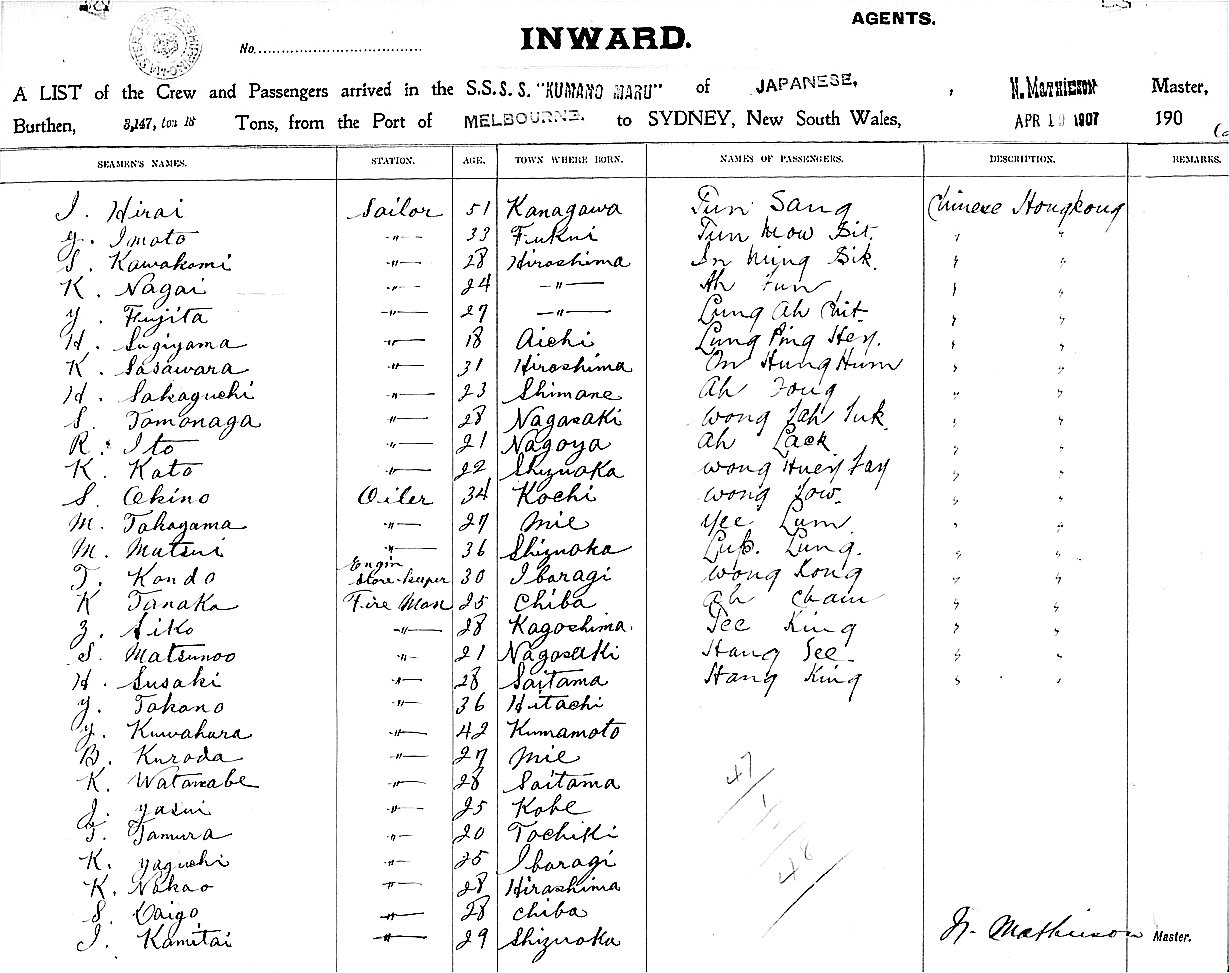 AGENTS.
No.
INWARD.
A LIST of the Crew and Passengers arrived in the S.S. S. S. "KUMANO MARU" of JAPANESE, , N. MATHIESON Master,
Burthen, 3,147, ton 18 Tons, from the Port of MELBOURNE. to SYDNEY, New South Wales, APR 19 1907 190
SEAMEN'S NAMES. STATION. AGE. TOWN WHERE BORN. NAMES OF PASSENGERS. DESCRIPTION. REMARKS.
I. Hirai Sailor 51 Kanagawa Tun Sang Chinese Hongkong
Y. Imoto -"- 33 Fukui Tun Mow Sit. " "
S. Kawakami -"- 28 Hiroshima In Ming Sik. " "
K. Nagai -"- 24 -"- Ah Fun " "
Y. Fujita -"- 27 -"- Lung Ah Chit " "
H. Sugiyama -"- 18 Aichi Lung Ping Hey. " "
K. Sasawara -"- 31 Hiroshima On Hung Hum " "
H. Sakaguchi -"- 23 Shimane Ah Fong " "
S. Tomonaga -"- 28 Nagasaki Wong Tuk " "
R. Ito -"- 21 Nagoya Ah Lack " "
K. Kato -"- 22 Shizuoka Wong Huey " "
S. Akino Oiler 34 Kochi Wong " "
M. Takayama -"- 27 Mie Yee Lum " "
M. Matsui -"- 36 Shizuoka Lung. " "
T. Kondo Engin Store-keeper 30 Ibaragi Wong Kong " "
K Tanaka Fire Man 25 Chiba Ah Cham " "
Z. Siko -"- 28 Kagoshima. King " "
S. Matsunoo -"- 21 Nagasaki Hang See " "
H. Susaki -"- 28 Saitama Hang King " "
Y. Takano -"- 36 Hitachi
Y. Kuwahara -"- 42 Kumamoto
B. Kuroda -"- 27 Mie
K. Watanabe -"- 28 Saitama
J. Yasui -"- 25 Kobe
T. Tamura -"- 20 Tochiki
K. Yaguchi -"- 25 Ibaragi
K. Nakao -"- 28 Hirashima
S. Daigo -"- 28 Chiba
I. Kamitai -"- 29 Shizuoka N. Mathieson Master.
47
1
48